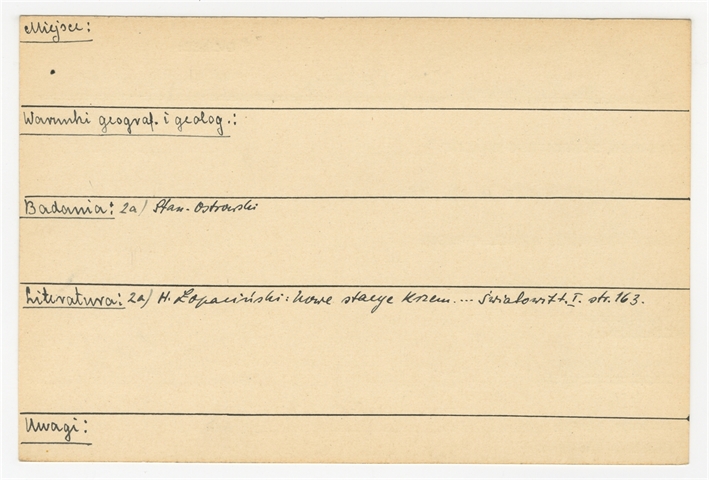 Miejsce:
Warunki geograf. i geolog.:
Badania: 2a/ Stan. Ostrowski
Literatura: 2a/ H. Łopaciński: Nowe stacye krzem.... Światowit t. I. str. 163.
Uwagi: